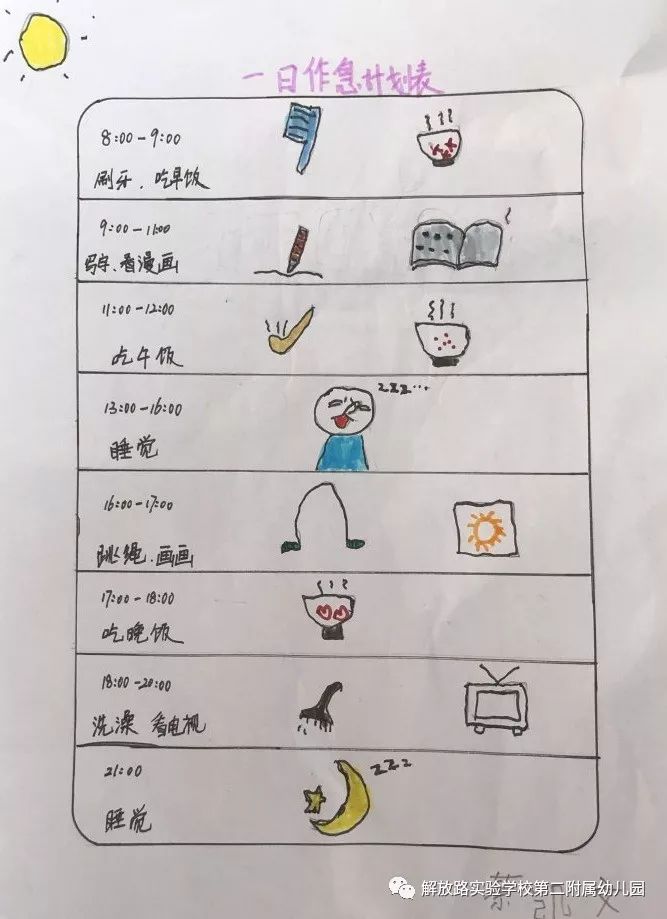 一日作息计划表
8:00-9:00
刷牙、吃早饭
9:00-11:00
写字、看漫画
11:00-12:00
吃午饭
zzz...
13:00-16:00
睡觉
16:00-17:00
跳绳、画画
17:00-18:00
吃晚饭
18:00-20:00
洗澡 看电视
zzz
21:00
睡觉
解放路实验学校第二附属幼儿园